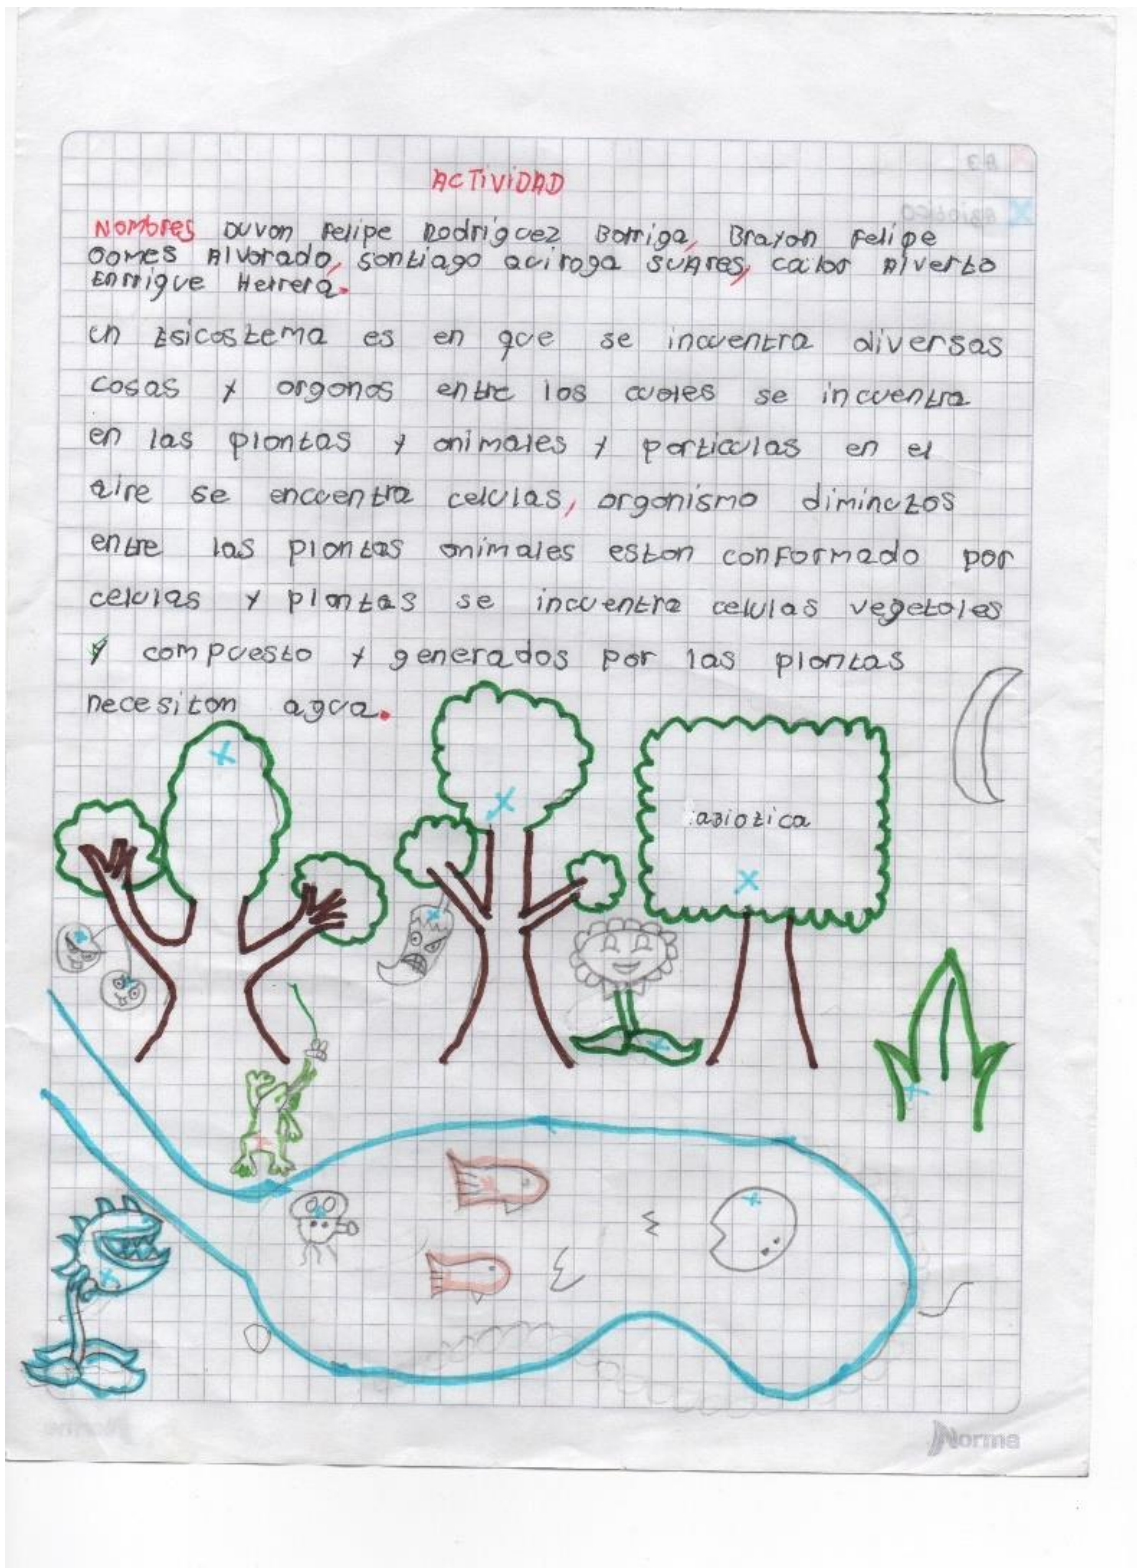 ACTIVIDAD
Nombres Duvan Felipe Rodriguez Barriga, Brayan Felipe
Gomes Alvarado, Santiago Quiroga Suares, Carlos Alverto
Enrrique Herrera.
un Esicostema es en que se incuentra diversas
cosas y organos entre los cuales se incuentra
en las plantas y animales y particulas en el
aire se encuentra celulas, organismo diminutos
entre las plantas animales estan conformado por
celulas y plantas se incuentra celulas vegetales
y compuesto y generados por las plantas
necesitan agua.
abiotica
Norma